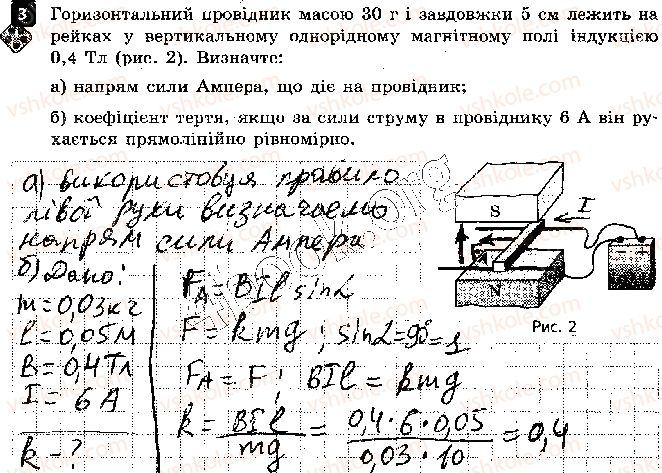 3 Горизонтальний провідник масою 30 г і завдовжки 5 см лежить на
рейках у вертикальному однорідному магнітному полі індукцією
0,4 Тл (рис. 2). Визначте:
а) напрям сили Ампера, що діє на провідник;
б) коефіцієнт тертя, якщо за сили струму в провіднику 6 А він ру-
хається прямолінійно рівномірно.
а) використовуя правило
лівої руки визначаємо
напрям сили Ампера
S
I
N
Рис. 2
б) Дано:
m = 0,03 кг
l = 0,05 м
B = 0,4 Тл
I = 6 А
k - ?
F_A = BIl sinα
F = kmg ; sinα = 90° = 1
F_A = F ; BIl = kmg
k = BIl / mg = 0,4·6·0,05 / 0,03·10 = 0,4